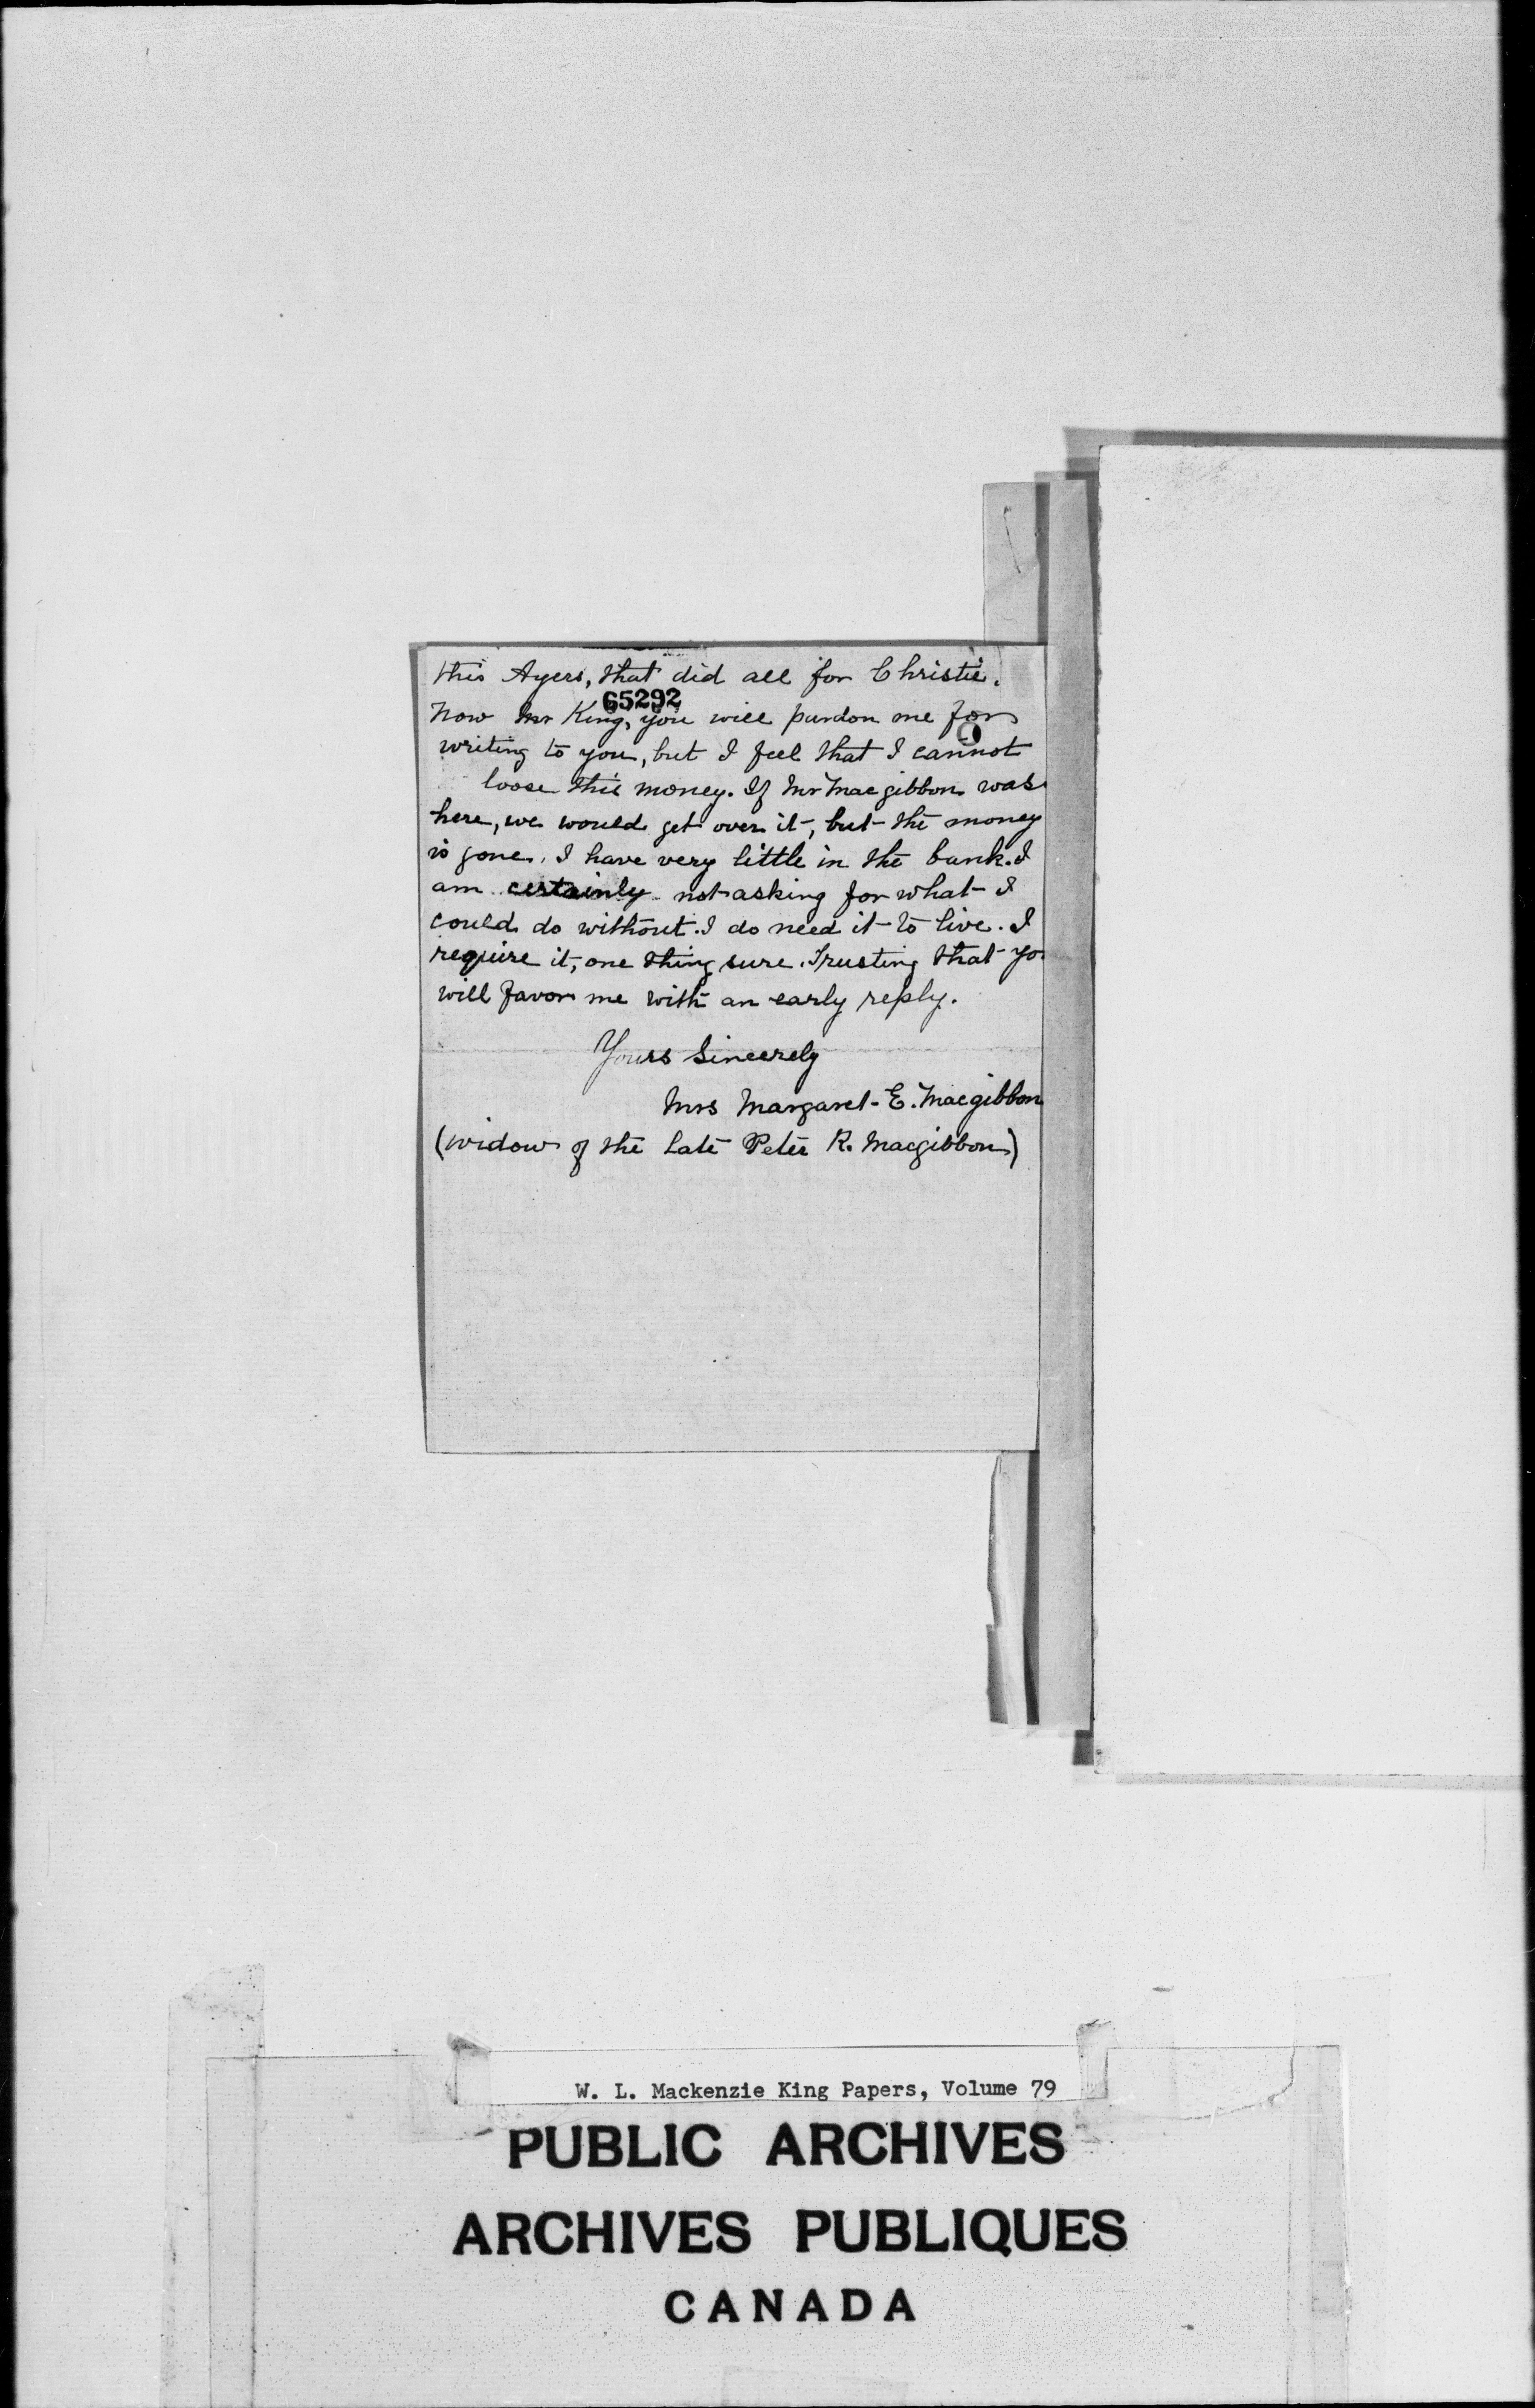 this Ayers, that did all for Christie.
65292
Now Mr King, you will pardon me for
writing to you, but I feel that I cannot
loose this money. If Mr Macgibbon was
here, we would get over it, but the money
is gone. I have very little in the bank. I
am certainly not asking for what I
could do without. I do need it to live. I
require it, one thing sure. Trusting that yo
will favor me with an early reply.
Yours Sincerely
Mrs Margaret E. Macgibbon
(widow of the late Peter R. Macgibbon)
W. L. Mackenzie King Papers, Volume 79
PUBLIC ARCHIVES
ARCHIVES PUBLIQUES
CANADA